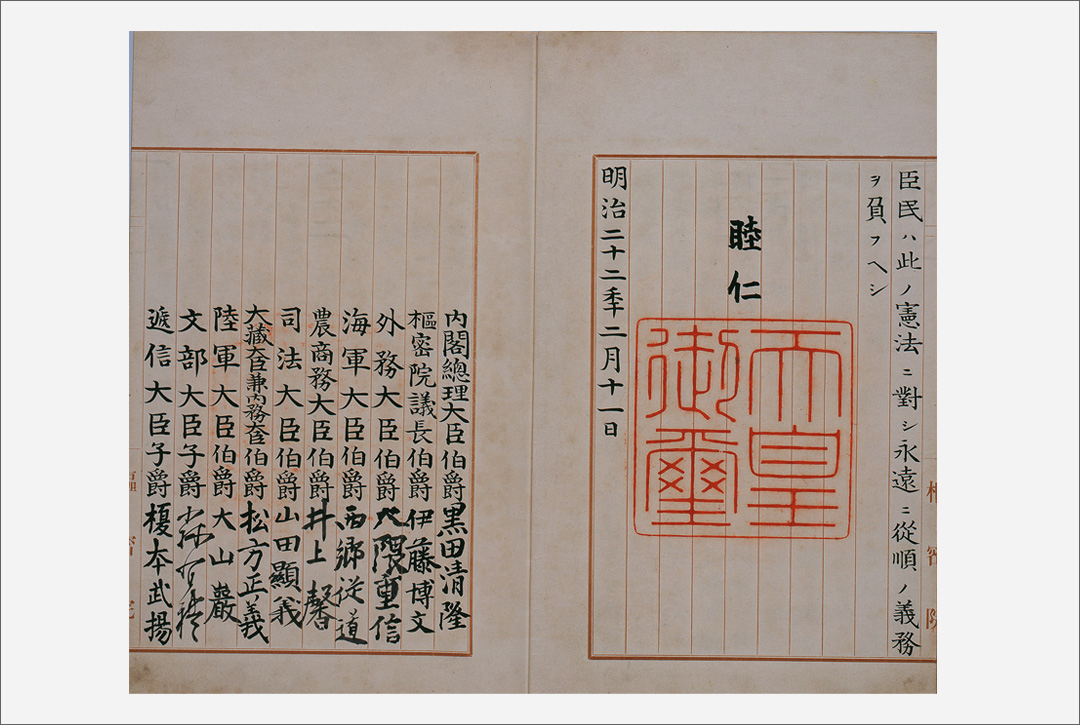 臣民ハ此ノ憲法ニ對シ永遠ニ從順ノ義務
ヲ負フヘシ
睦仁
天皇
御璽
明治二十二年二月十一日
內閣總理大臣伯爵黒田清隆
樞密院議長伯爵伊藤博文
外務大臣伯爵大隈重信
海軍大臣伯爵西郷従道
農商務大臣伯爵井上馨
司法大臣伯爵山田顯義
大藏大臣兼內務大臣伯爵松方正義
陸軍大臣伯爵大山巖
文部大臣子爵森有禮
遞信大臣子爵榎本武揚